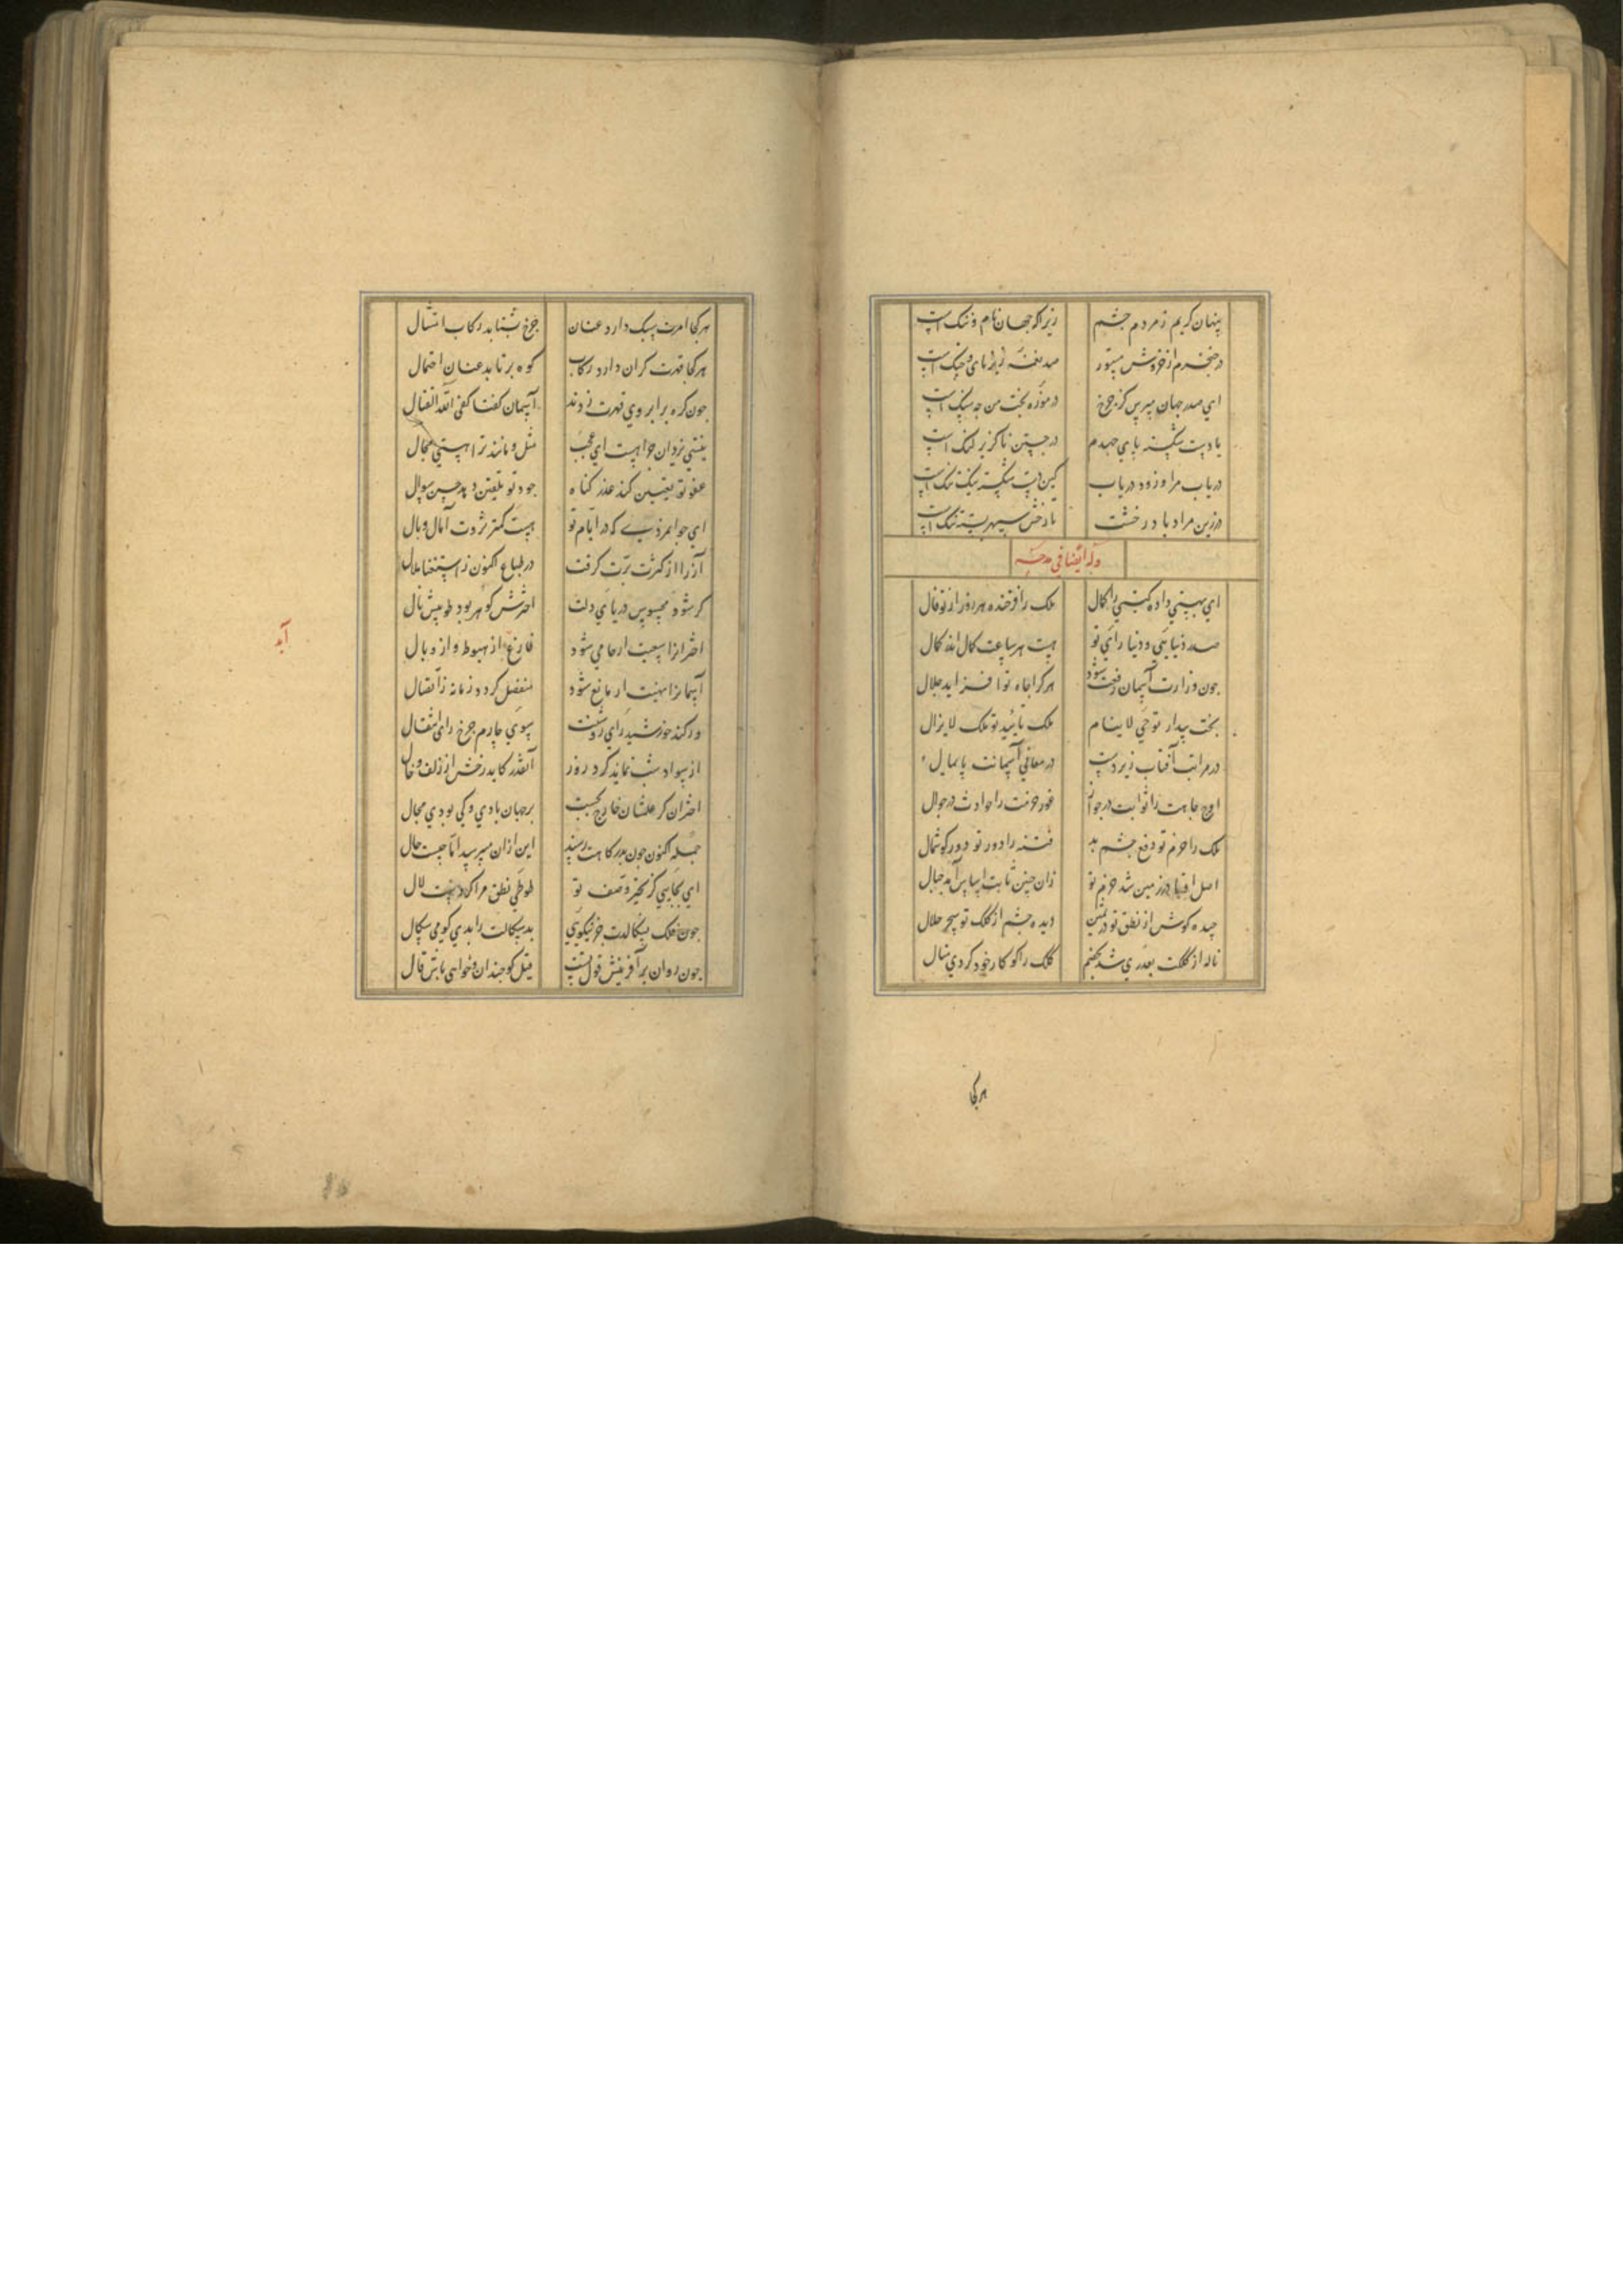 پنهان کریم ز مردم چشم زیرا که جهان نام و ننک است
در حنجرم از خروش مستور صد نغمه زیر نای و چنک است
ای صدر جهان مپرس کز چرخ در موزه بخت من چه سنک است
با دست شکسته پای جهدم در جستن ناکزیر لنک است
دریاب مرا و زود دریاب کین دست شکسته نیک تنک است
در زین مراد باد رخشت تا رخش سپهر بسته تنک است
وله ایضا فی مدحه
ای بهستی داده کیتی را کمال ملک را فرخنده هر روز از تو فال
صدر دنیایی و دنیا را ی تو هست هر ساعت کمال اندر کمال
چون وزارت آسمان رفعت شود هر کرا جاه تو افزاید جلال
بخت بیدار تو حی لا ینام ملک تایید تو ملک لایزال
در مراتب آفتابت زیردست در معالی آسمانت پایمال
اوج جاهت را ثوابت در جوار غور حزمت را حوادث در جوال
ملک را حزم تو دفع چشم بد فتنه را دور تو دور کوشمال
اصل در زمین شد حزم تو زان چنین ثابت اساس آمد جبال
چیده کوش از نطق تو در ثمین دیده چشم از کلک تو سحر حلال
ناله از کلکت بقدری شد کلک را کو کار خود کردی منال
هرکجا
هرکجا امرت سبک دارد عنان چرخ بشتابد رکاب امتثال
هرکجا قهرت کران دارد رکاب کوه برتابد عنان احتمال
چون کره بر ابروی قهرت زدند آسمان کفتا کفی الله القتال
نیستی یزدان چرا هست ای عجب مثل و مانند ترا هستی محال
عفو تو تعیین کند عذر کناه جود تو تلقین دهد حسن سوال
ای جوانمردی که در ایام تو هست کمتر ثروت آمال و بال
آز را از کثرت برت کرفت در طباع اکنون ز استغنا ملال
کر شود محبوس دریای دلت اخترش کوهر بود طوبیش نال
اختران را سعیت ار حامی شود فارغ آید از هبوط و از وبال
آسمان را نهیت ار مانع شود منفصل کردد زمانه ز اتصال
ور کند خورشید رای روشنت سوی چارم چرخ رای انتقال
از سواد شب نماند کرد روز آنقدر کاید رخش را زلف و خال
اختران کر علمشان خارج حسبت بر جهان بادی و کی بودی مجال
جمله اکنون چون بدرکاهت رسند این ازان می‌پرسد آیا چیست حال
ای بجایی کز تحیر وصف تو طوطی نطق مرا کردست لال
چون فلک نسکالدت جز نیکویی بدسکالت را بدی کو می‌سکال
چون روان بر آفرینش قول تست قیل کو چندان که خواهی باش قال
آید